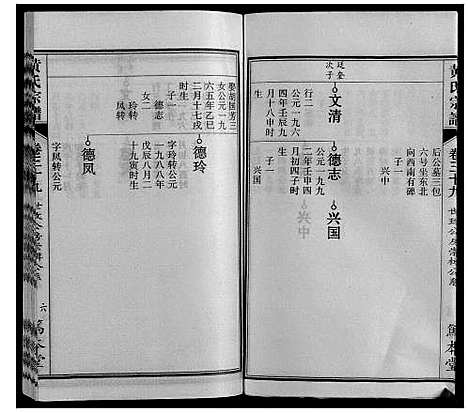 黄氏宗谱
卷三十九
笃本堂
后公墓三包
六号坐东北
向西南有碑
子一
兴中
廷奎
次子
文清
行二
公元一九六
四年壬辰九
月十八申时
生
德志
公元一九九
二年壬申四
月初四子时
生
子一
兴国
兴国
兴中
娶胡国芳三
女公元一九
六五年乙巳
二月十七戌
时生
子一
德志
女二
玲转
凤转
德玲
字玲转公元
一九八八年
戊辰八月二
十九寅时生
德凤
字凤转公元
黄氏宗谱
卷三十九
六
笃本堂